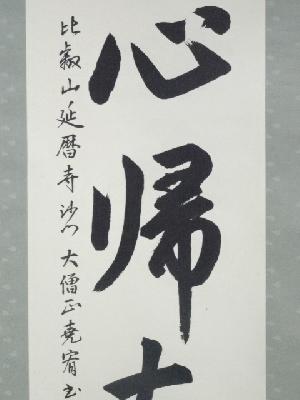 心帰大
比叡山延暦寺沙門大僧正堯宥書